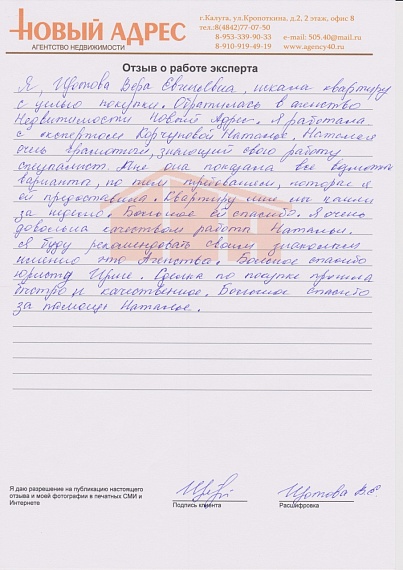 НОВЫЙ АДРЕС
АГЕНТСТВО НЕДВИЖИМОСТИ
г.Калуга, ул.Кропоткина, д.2, 2 этаж, офис 8
тел.:8(4842)77-07-50
8-953-339-90-33 e-mail: 505.40@mail.ru
8-910-919-49-19 www.agency40.ru
Отзыв о работе эксперта
Я, Щитова Вера Евгеньевна, искала квартиру
с целью покупки. Обратилась в агенство
Недвижимости Новый Адрес. Я работала
с экспертом Корчуновой Натальей. Наталья
очень грамотный, знающий свою работу
специалист. Мне она показала все возможные
варианты, по тем требованием, которые я
ей предоставила. Квартиру мы нашли
за неделю. Большое ей спасибо. Я очень
довольна качеством работы Натальи.
Я буду рекомендовать своим знакомым
именно это Агенства. Большое спасибо
юристу Ирине. Сделка по покупке прошла
быстро и качественное. Большое спасибо
за помощь Наталье.
Я даю разрешение на публикацию настоящего
отзыва и моей фотографии в печатных СМИ и
Интернете
Подпись клиента
Расшифровка